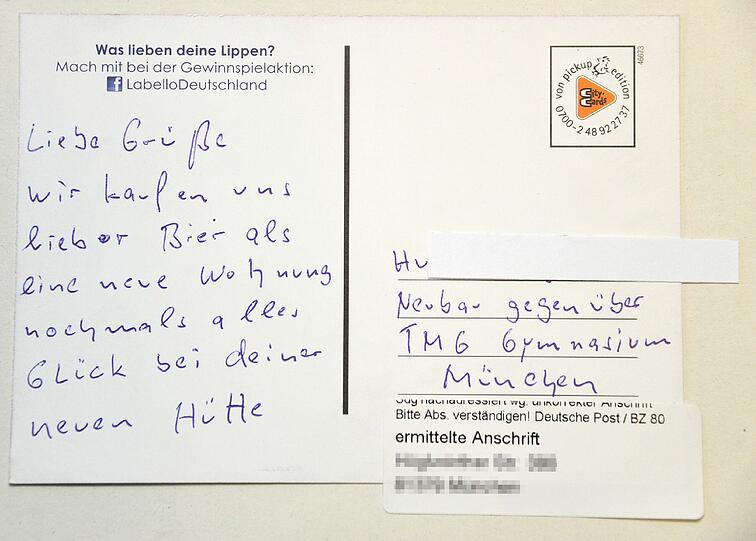 Was lieben deine Lippen?
Mach mit bei der Gewinnspielaktion:
f LabelloDeutschland
Liebe Grüße
wir kaufen uns
lieber Bier als
eine neue Wohnung
nochmals alles
Glück bei deiner
neuen Hütte
von pickup edition
City Cards
0700-248922737
46673
Neubau gegenüber
TMG Gymnasium
München
Sdg nachadressiert wg. unkorrekter Anschrift
Bitte Abs. verständigen! Deutsche Post / BZ 80
ermittelte Anschrift